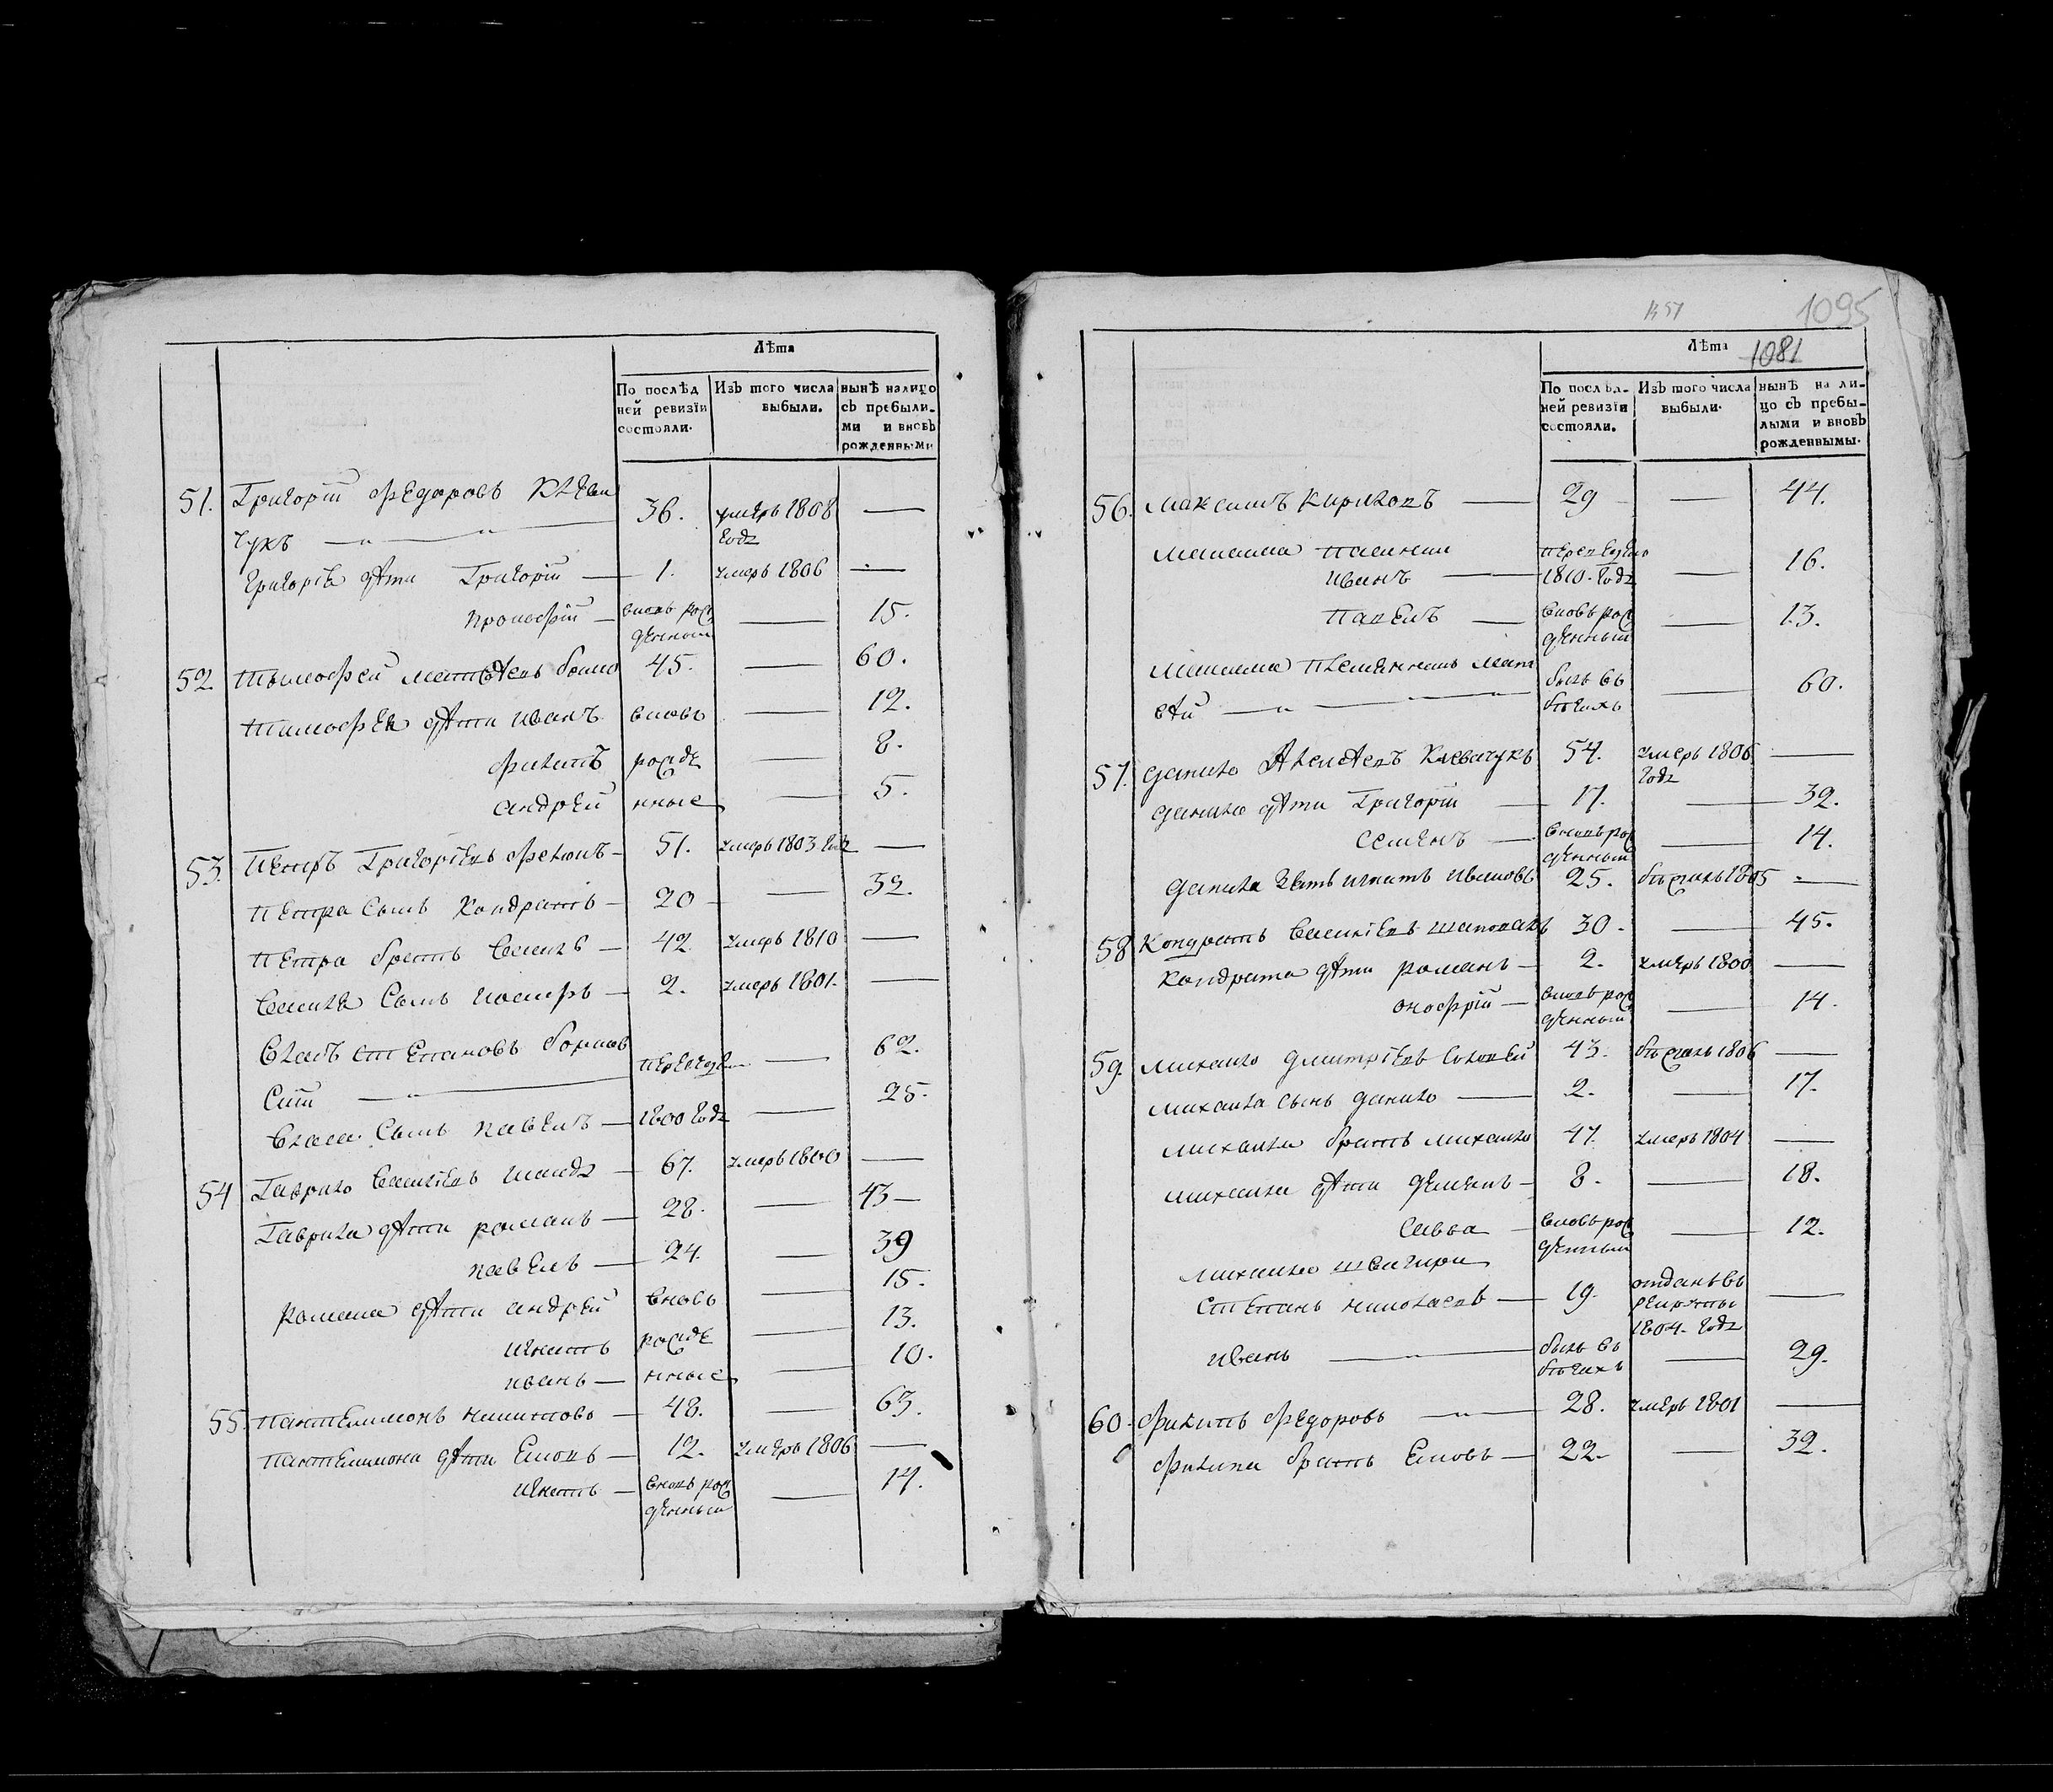 Лѣта
По послѣд
ней ревизїи
состояли.
Изъ того числа
выбыли.
нынѣ налицо
съ прибыли-
ми и вновь
рожденными
51. Григорїй Федоровъ Клеви
чукъ 36. умеръ 1808 —
годa
Григорїя дѣти Григорїй — 1. умеръ 1806 —
Прокофїй — вновь рож 15.
денный
52 Тимофей Матвѣевъ 45. — 60.
Тимофея дѣти Иванъ вновь — 12.
Филипъ рожде — 8.
Андрей нные — 5.
53. Петръ Григорїевъ 51. умеръ 1803 года —
Петра сынъ Кондратъ — 20 — 32.
Петра братъ Василь — 42 умеръ 1810 —
Василя сынъ — 2. умеръ 1801. —
Власъ Степановъ 62.
Власа сынъ Павелъ — 1800 года — 25.
54 Гаврило Василїевъ — 67. умеръ 1800 —
Гаврила дѣти Романъ — 28. — 43 —
Павелъ — 24. — 39
Романа дѣти Андрей вновь — 15.
Игнатъ рожде — 13.
Иванъ — нные — 10.
55. Пантелимонъ Никитовъ — 48. — 63.
Пантелимона дѣти — 12. умеръ 1806 —
Игнатъ — вновь рож — 14.
денный
1095
Лѣта 1081
По послѣд-
ней ревизїи
состояли.
Изъ того числа
выбыли.
нынѣ на ли-
цо съ прибы-
лыми и вновь
рожденнымы.
56. Максимъ Кириловъ — 29 — 44.
Максима пасинки переведено
Иванъ — 1810. года — 16.
Павелъ — вновь рож — 13.
денный
Максима племянникъ Мат
вѣй былъ въ — 60.
бѣгахъ
57. Данило Алексѣевъ Клевачукъ 54. умеръ 1806 —
года
Данила дѣти Григорїй — 17. — 32.
Семенъ — вновь рож — 14.
денный
Данила зять Игнатъ Ивановъ 25. бѣжалъ 1805 —
58 Кондратъ Василїевъ Шаповалъ 30. — 45.
Кондрата дѣти Романъ — 2. умеръ 1800 —
Онофрїй — вновь рож — 14.
денный
59. Михайло Дмитрїевъ Соловей 43. бѣжалъ 1806 —
Михайла сынъ Данило — 2. — 17.
Михайла братъ Михайло 47. умеръ 1804 —
Михайла дѣти Демянъ — 8. — 18.
Савва — вновь рож — 12.
денный
Михайла швагири
Степанъ Николаевъ — 19. отданъ въ —
рекруты
1804. года
Иванъ — былъ въ — 29.
бѣгахъ
60. Филипъ Федоровъ — 28. умеръ 1801 —
Филипа братъ — 22. — 32.